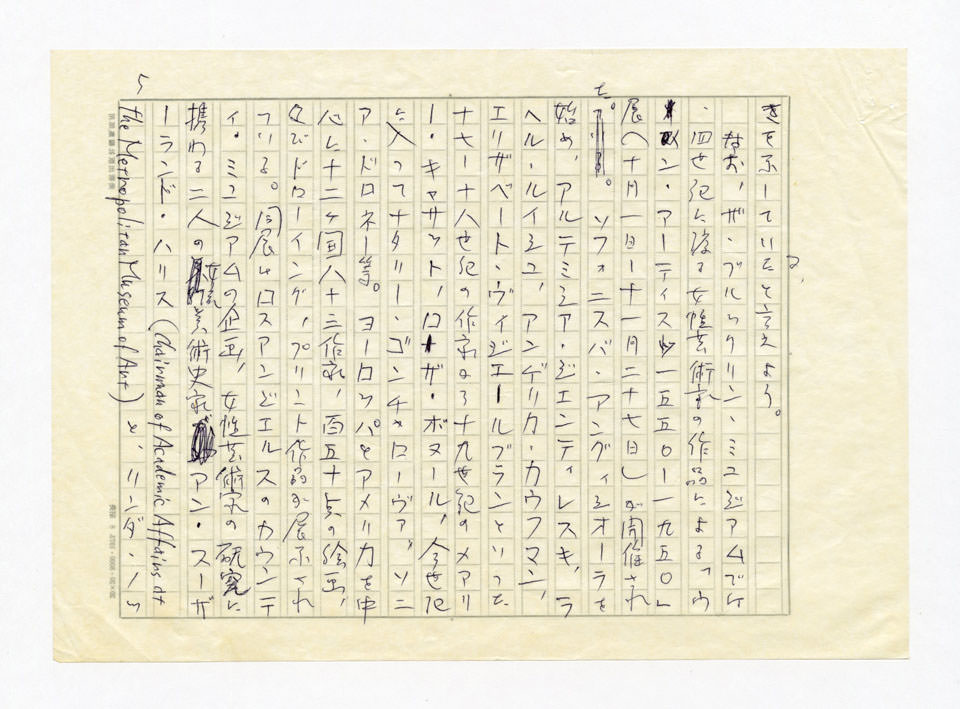 きを示していたと言えよう。
なお、ザ・ブルックリン・ミュジアムでは
、四世紀に渡る女性芸術家の作品による「ウ
ィメン・アーティスト一五五〇ー一九五〇」
展へ十月一日ー十一月二十七日しが開催され
た。ソフォニスバ・アングィシオーラを
始め、アルテミジア・ジェンティレスキ、ラ
ヘル・ルイシュ、アンゲリカ・カウフマン、
エリザベート・ヴィジェールブランといった
十七ー十八世紀の作家から十九世紀のメアリ
ー・キャサット、ローザ・ボヌール、今世紀
に入ってナタリー・ゴンチャローヴァ、ソニ
ア・ドロネー等。ヨーロッパとアメリカを中
心に十二ヶ国八十三作家、百五十点の絵画、
及びドローイング、プリント作品が展示され
ている。同展はロスアンジェルスのカウンテ
ィ・ミュジアムの企画、女性芸術家の研究に
携わる二人の女流美術史家アン・スーザ
ーランド・ハリス(Chairman of Academic Affairs at
the Metropolitan Museum of Art)と、リンダ・ノッ
5